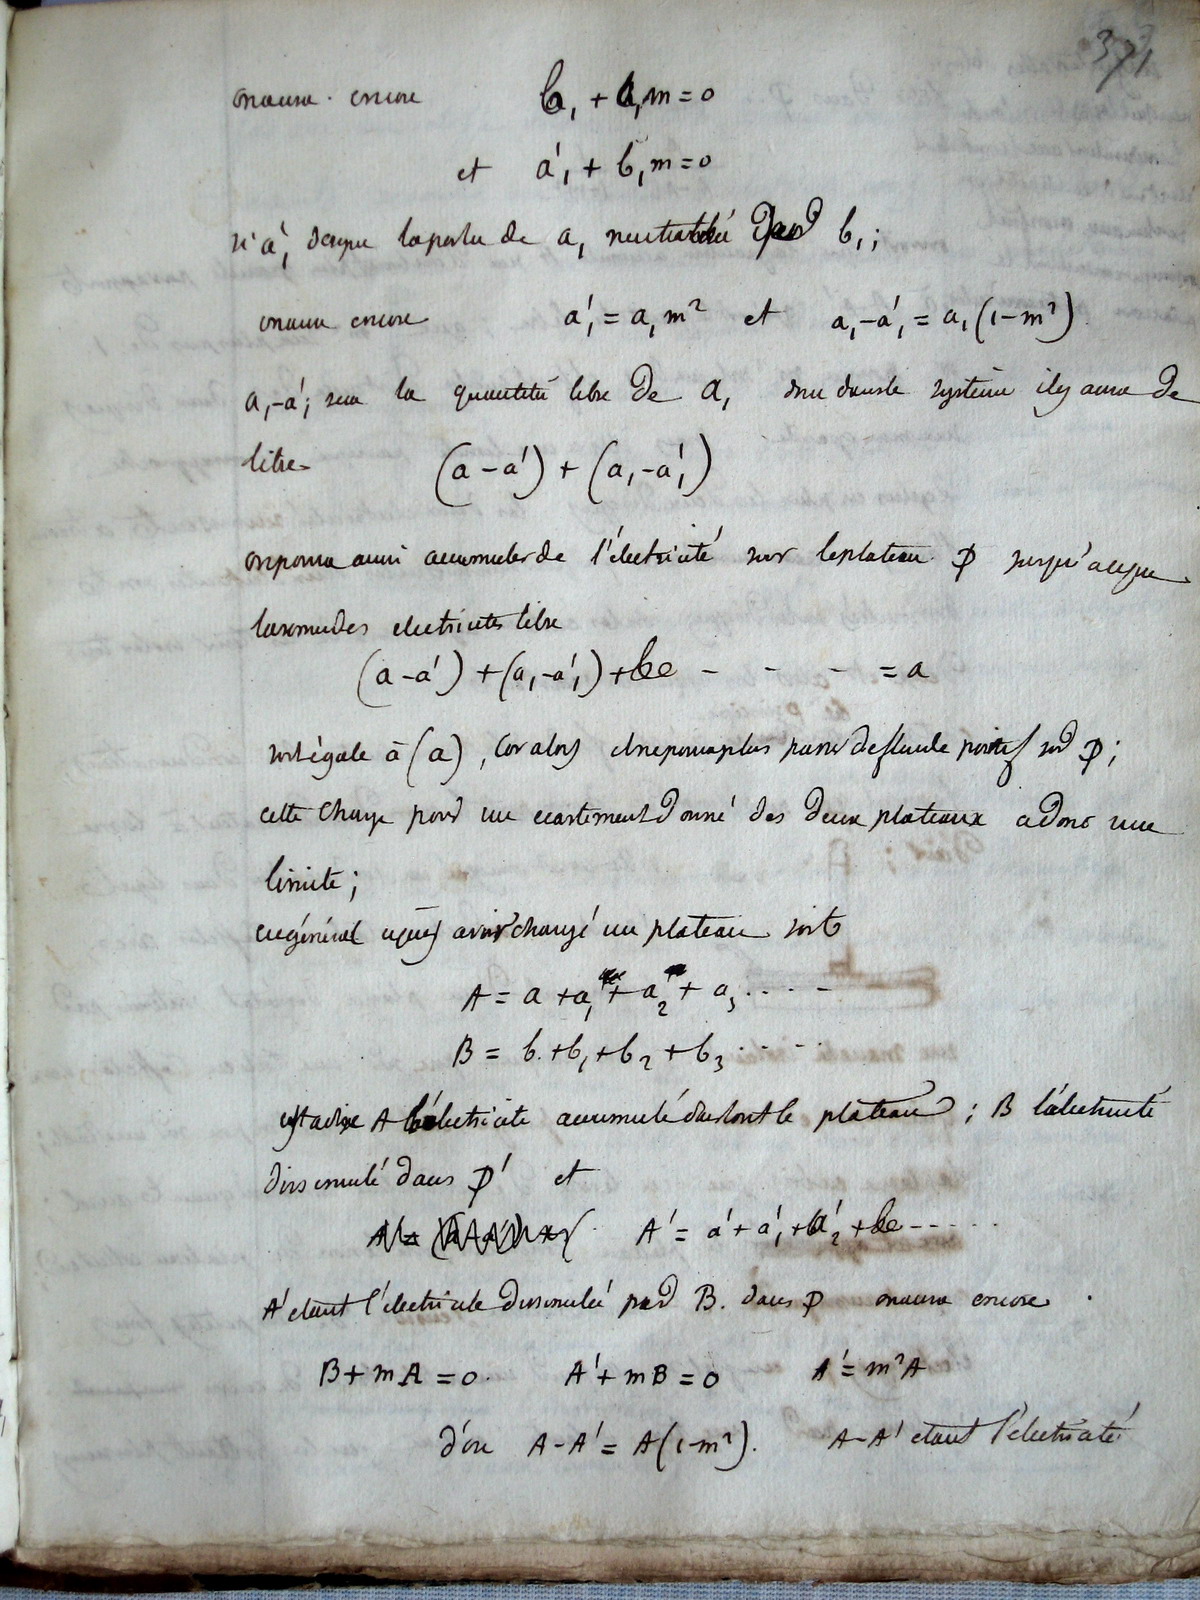 371
on aura encore b₁ + a₁m = 0
et a'₁ + b₁m = 0
si a'₁ designe la partie de a₁ neutralisé par b₁;
on aura encore a'₁ = a₁m² et a₁-a'₁ = a₁(1-m²)
a₁-a'₁ sera la quantité libre de a₁ donc dans le système il y aura de
libre (a-a') + (a₁-a'₁)
on pourra ainsi accumuler de l'électricité sur le plateau P jusqu'à ce que
la somme des electricités libre
(a-a') + (a₁-a'₁) + &c - - - = a
soit égale à (a), car alors il ne pourra plus passer de fluide positif sur P;
cette charge pour un ecartement donné des deux plateaux a donc une
limite;
en général après avoir chargé un plateau soit
A = a + a₁ + a₂ + a₃ . . . -
B = b + b₁ + b₂ + b₃ . . - .
c'est a dire A l'électricité accumulé dans tout le plateau; B l'électricité
dissimulé dans P' et
A' = a' + a'₁ + a'₂ + &c - - - - .
A' etant l'électricité dissimulée par B. dans P on aura encore
B + mA = 0. A' + mB = 0 A' = m²A
d'ou A-A' = A(1-m²). A-A' etant l'électricité